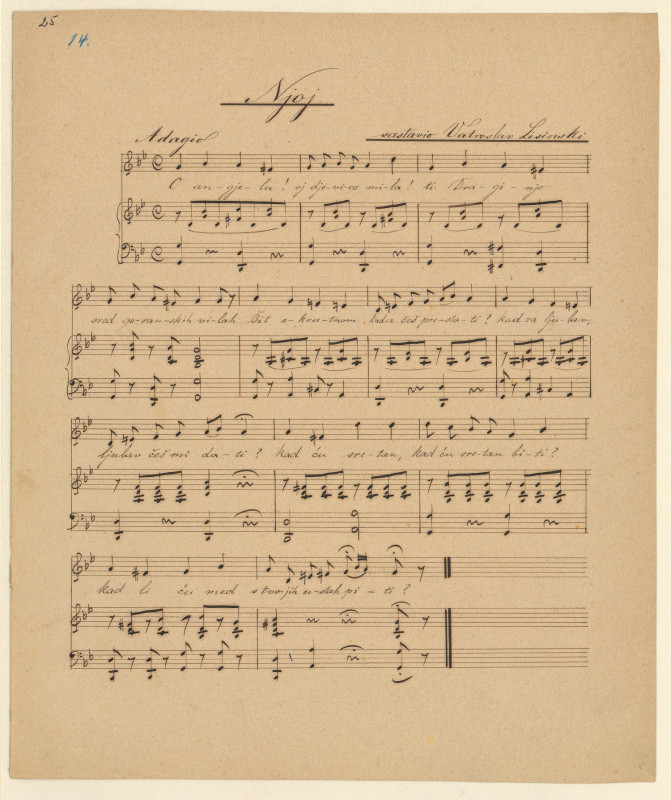 25
14.
Njoj
Adagio sastavio Vatroslav Lisinski
O an-gje-lu! oj dje-vi-co mi-la! ti Dra-gi-njo
sred go-ran-skih vi-lah Bit o-kru-tnom kada ćeš pre-sta-ti? kad va lju-bav,
ljubav ćeš mi da-ti? kad ću sre-tan, kad ću sre-tan bi-ti?
kad li ću med s tvo-jih u-stah pi-ti?